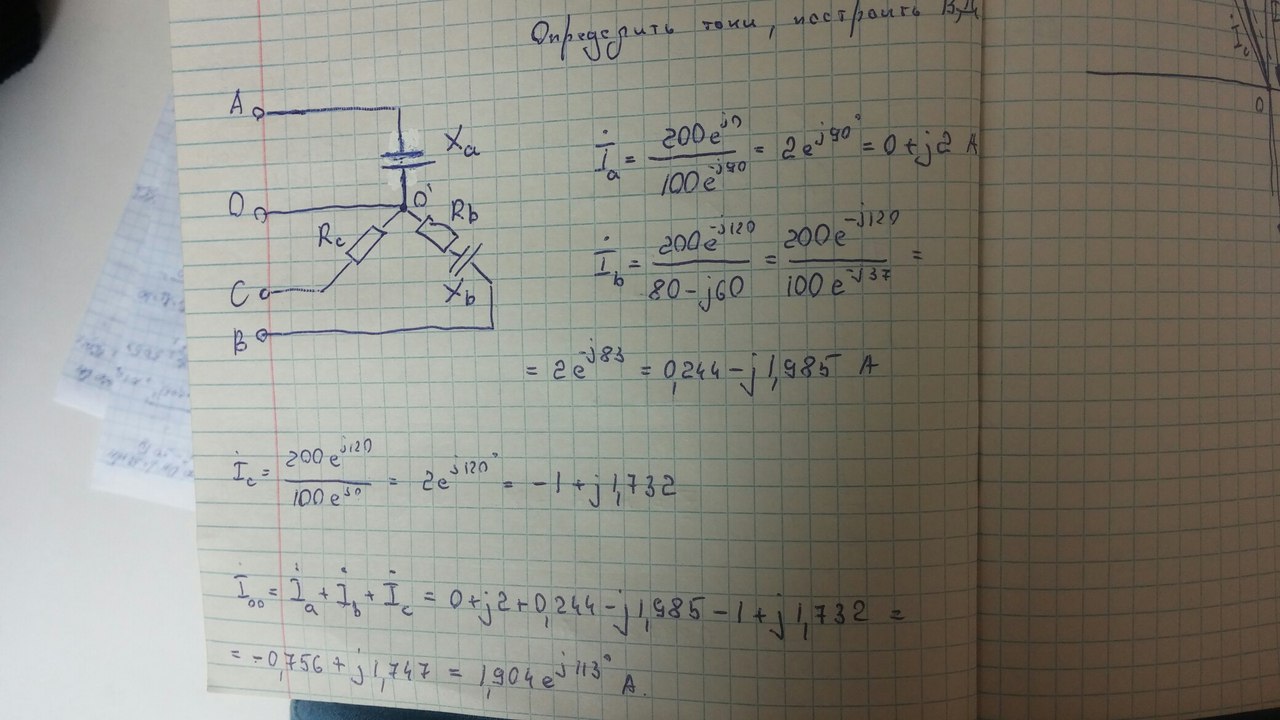 Определить токи, построить В.Д
A
Xa
O
O'
Rb
Rc
C
Xb
B
İa = 200e^j0 / 100e^-j90 = 2e^j90° = 0 + j2 A
İb = 200e^-j120 / 80 - j60 = 200e^-j120 / 100e^-j37 =
= 2e^-j83 = 0,244 - j1,985 A
İc = 200e^j120 / 100e^j0 = 2e^j120° = -1 + j1,732
İ00 = İa + İb + İc = 0 + j2 + 0,244 - j1,985 - 1 + j1,732 =
= -0,756 + j1,747 = 1,904e^j113° A.
İc
0